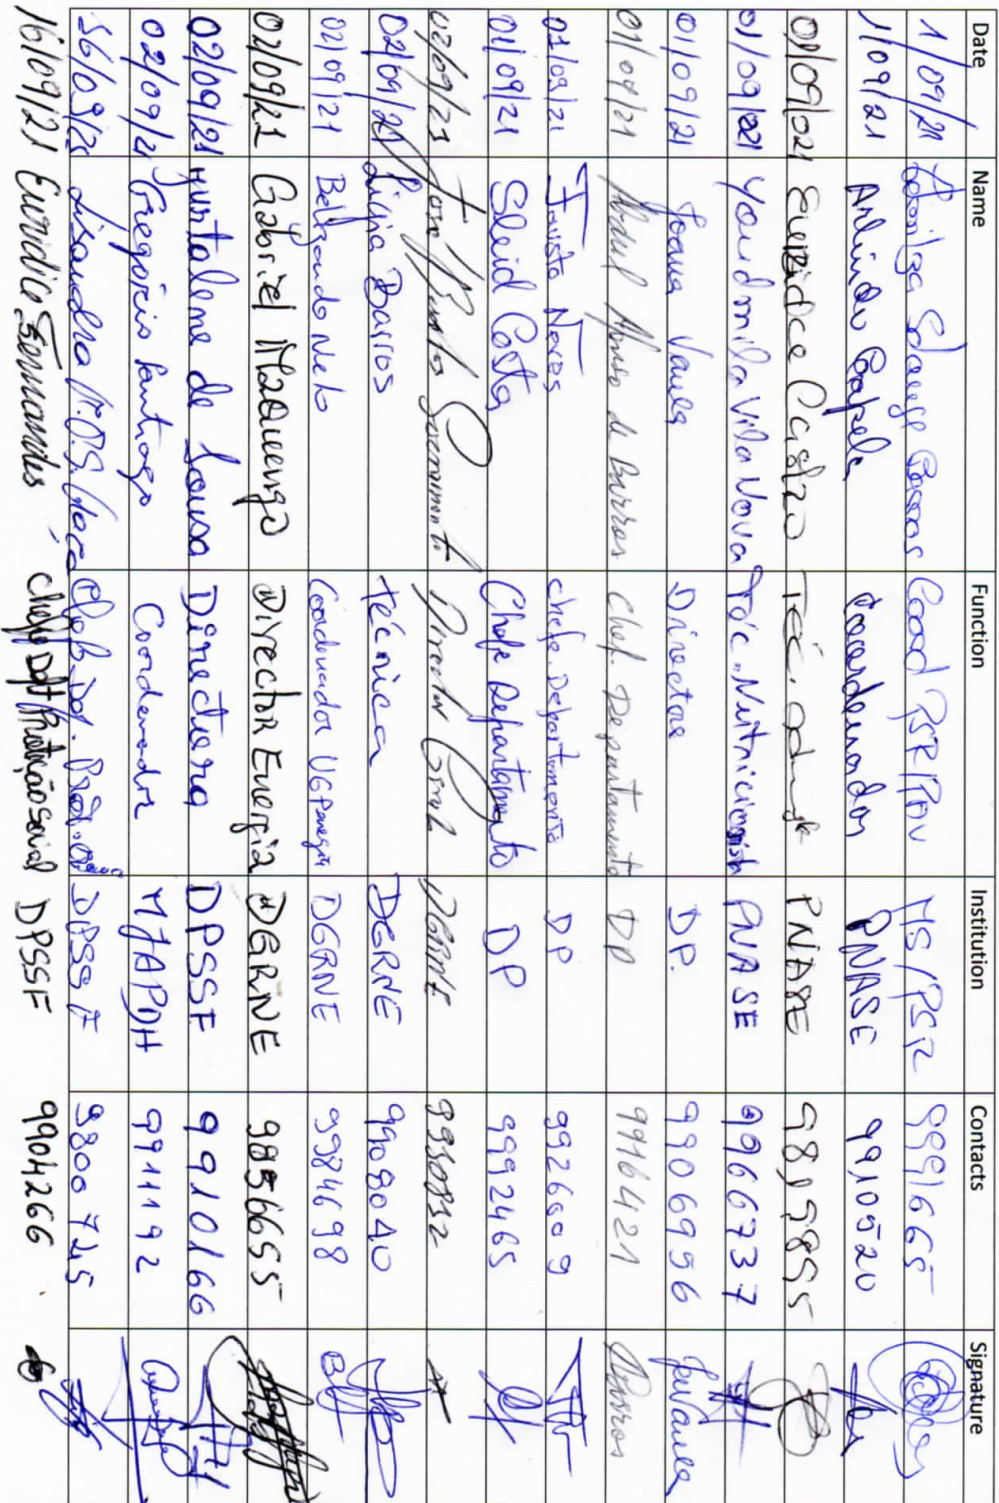 Date Name Function Institution Contacts Signature
1/09/21 Solange Coord PSR/PAV MS/PSR 9991665
1/09/21 Arlindo Capela Coordenador PNASE 9910520
01/09/021 Euridce Castro Téc. PNASE 9819855
01/09/021 Youdmila Vila Nova Téc. Nutricionista PNASE 9966737
01/09/21 Joana Varela Directora DP. 9906956
01/09/21 Abdul Afonso de Barros Chef. Departamento DP 9916421
01/09/21 Fausto Neves chefe. Departamento DP 9926009
01/09/21 Sleid Costa Chefe Departamento DP 9992465
02/09/21 José Sacramento Director Geral DGRNE
02/09/21 Ligia Barros técnica DGRNE 9908040
02/09/21 Belizardo Neto Coordenador DGRNE 9984698
02/09/21 Gabriel Maquengo Director Energia DGRNE 9856655
02/09/21 de Sousa Directora DPSSF 9910166
02/09/21 Gregório Santiago Coordenador MAPDR 9911192
Lisandra DPSSF
16/09/21 Euridice Fernandes chefe Dpt Proteção social DPSSF 9904266